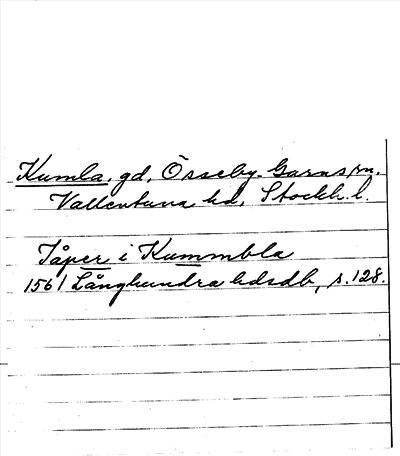 Kumla, gd, Össeby-Garns sn.
Vallentuna hd, Stockh. l.
Jåper i Kummbla
1561 Långhundra hdsdb, s. 128.